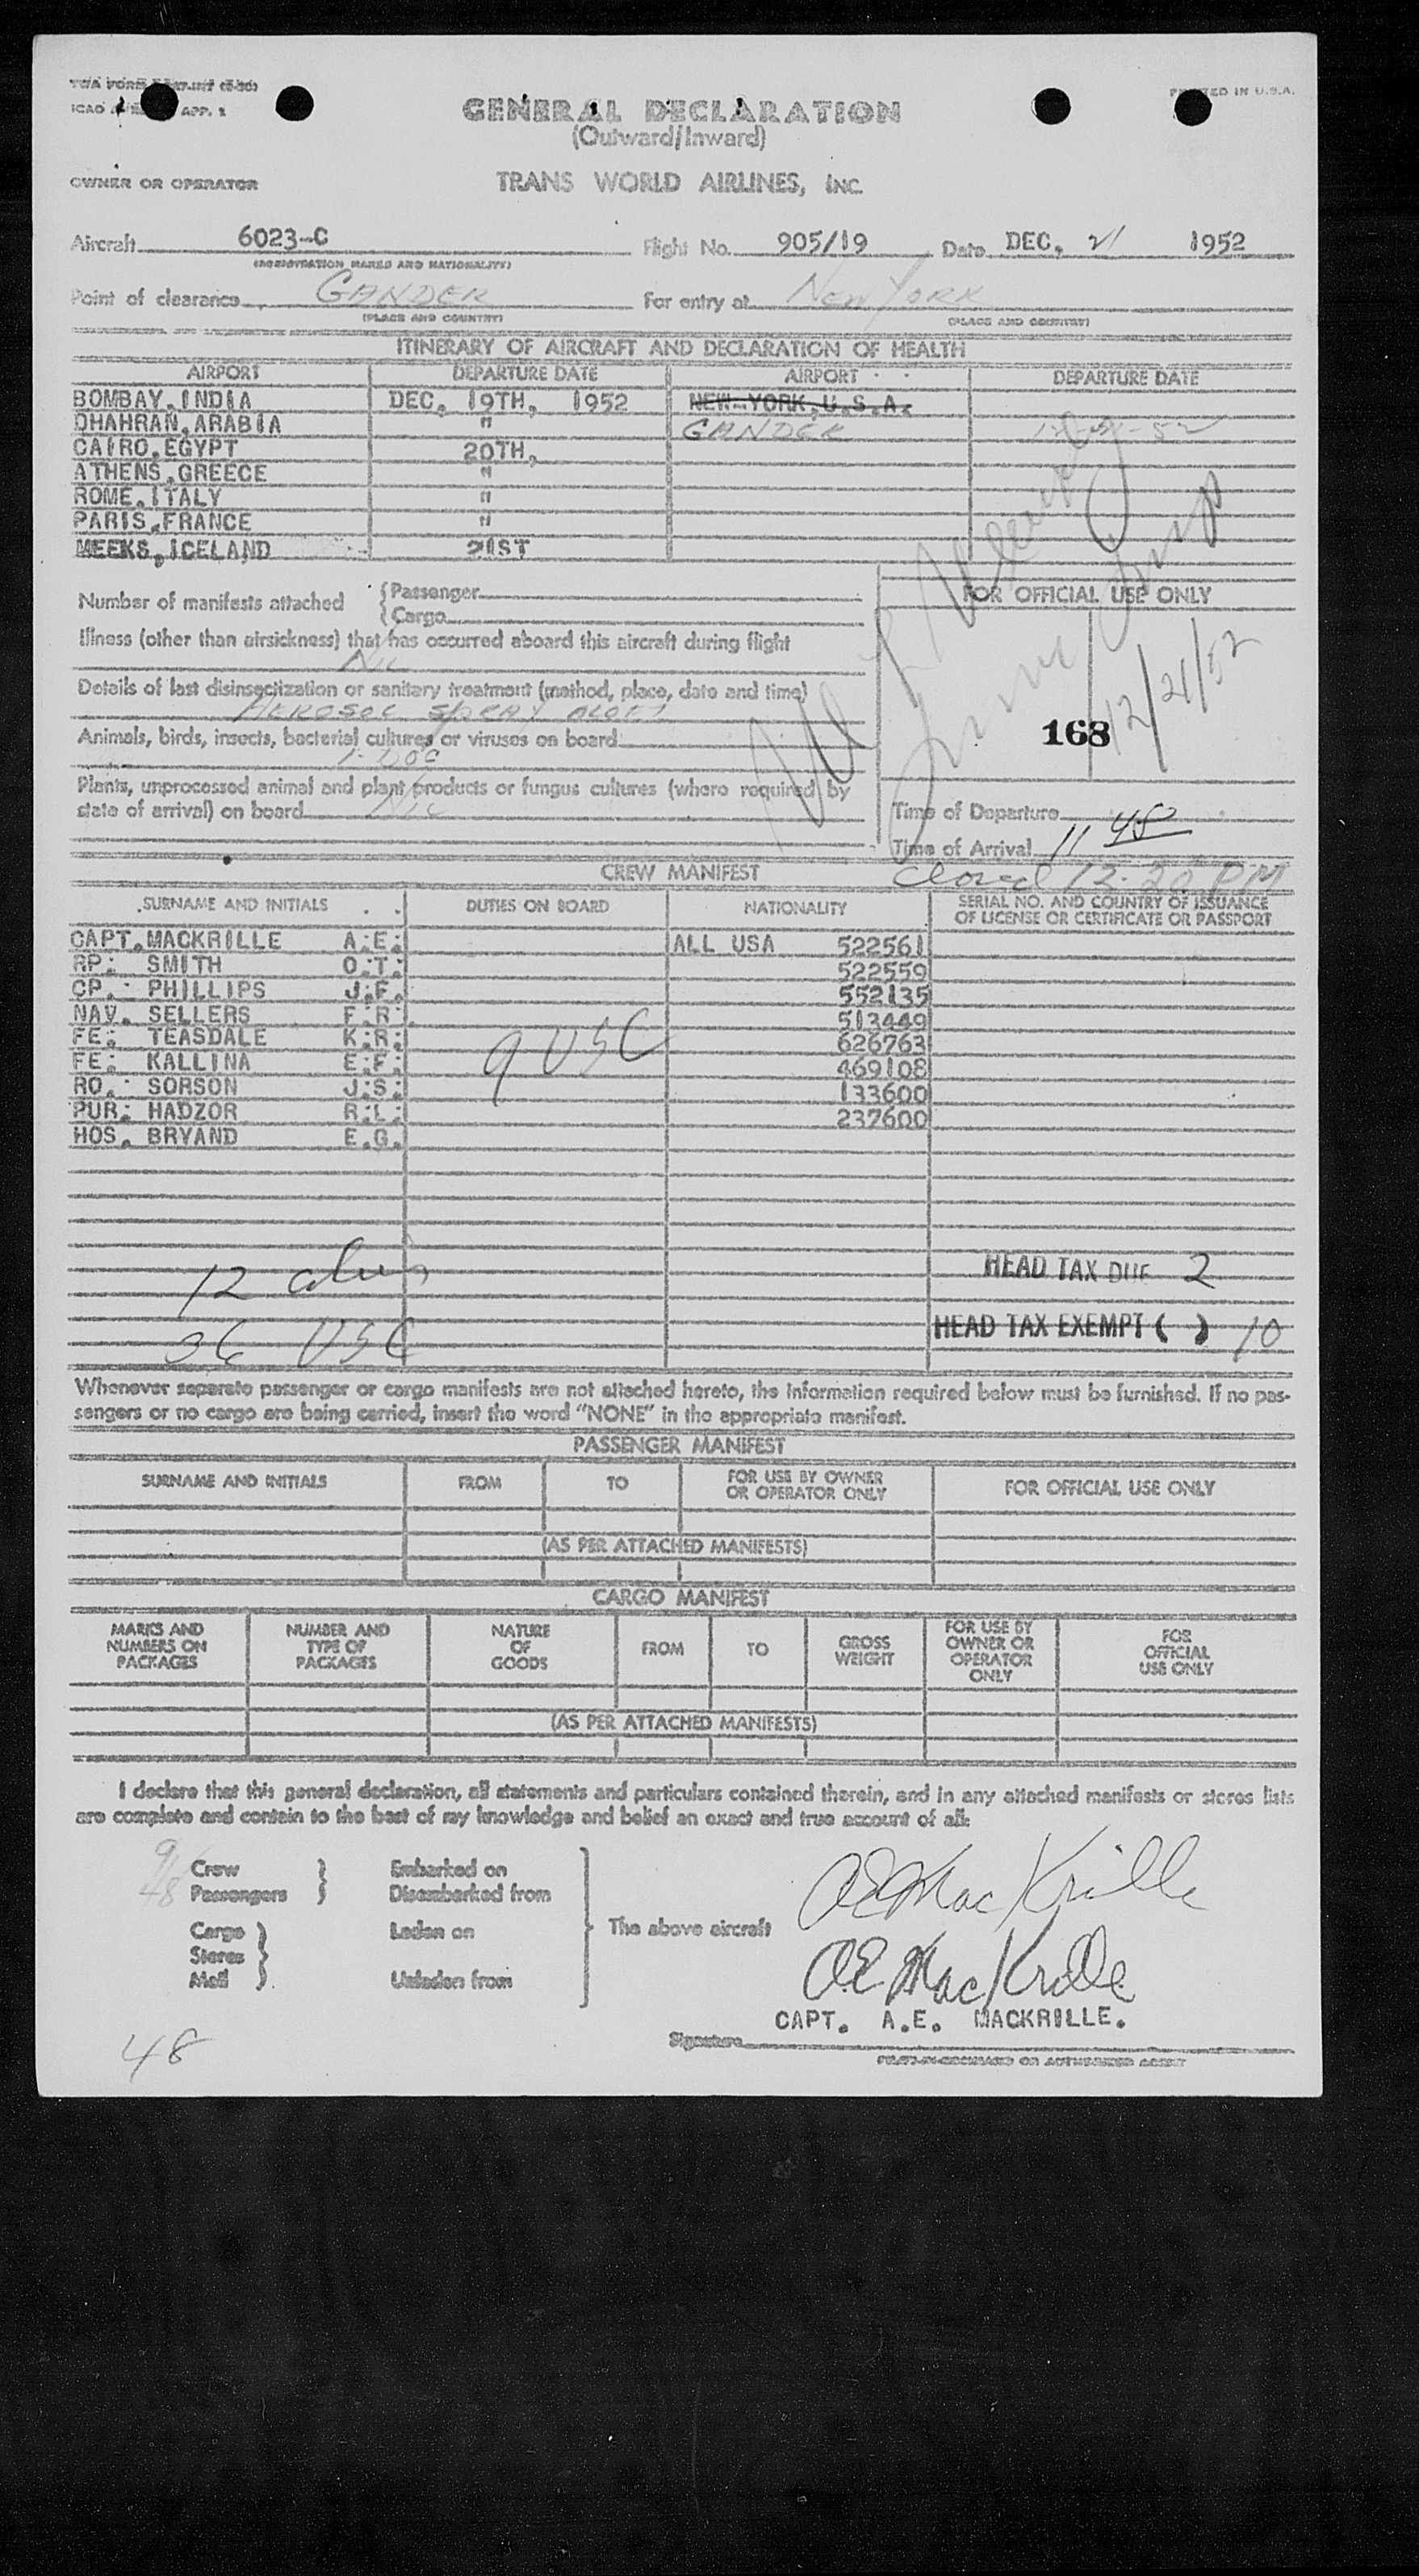 TWA FORM
ICAO APP. 1
PRINTED IN U.S.A.
GENERAL DECLARATION
(Outward/Inward)
OWNER OR OPERATOR TRANS WORLD AIRLINES, INC.
Aircraft 6023-C Flight No. 905/19 Date DEC. 21 1952
(REGISTRATION MARKS AND NATIONALITY)
Point of clearance GANDER For entry at NEW YORK
(PLACE AND COUNTRY) (PLACE AND COUNTRY)
ITINERARY OF AIRCRAFT AND DECLARATION OF HEALTH
AIRPORT DEPARTURE DATE AIRPORT DEPARTURE DATE
BOMBAY, INDIA DEC. 19TH, 1952 NEW-YORK, U.S.A.
DHAHRAN, ARABIA " GANDER 12-21-52
CAIRO, EGYPT 20TH,
ATHENS, GREECE "
ROME, ITALY "
PARIS, FRANCE "
MEEKS, ICELAND 21ST
Number of manifests attached { Passenger
{ Cargo
FOR OFFICIAL USE ONLY
Illness (other than airsickness) that has occurred aboard this aircraft during flight
NIL
Details of last disinsectization or sanitary treatment (method, place, date and time)
AEROSOL SPRAY ALOFT
Animals, birds, insects, bacterial cultures or viruses on board
1-DOG
168
12/21/52
Plants, unprocessed animal and plant products or fungus cultures (where required by
state of arrival) on board NIL
Time of Departure
Time of Arrival 11 45
Closed 12:20 PM
CREW MANIFEST
SURNAME AND INITIALS DUTIES ON BOARD NATIONALITY SERIAL NO. AND COUNTRY OF ISSUANCE
OF LICENSE OR CERTIFICATE OR PASSPORT
CAPT. MACKRILLE A.E. ALL USA 522561
RP: SMITH O.T. 522559
CP.: PHILLIPS J.F. 552135
NAV. SELLERS F.R. 513449
FE: TEASDALE K.R. 626763
FE: KALLINA E.F. 469108
RO.: SORSON J.S. 133600
PUR: HADZOR R.L. 237600
HOS. BRYAND E.G.
9 USC
12 aliens
36 USC
HEAD TAX DUE 2
HEAD TAX EXEMPT ( ) 10
Whenever separate passenger or cargo manifests are not attached hereto, the information required below must be furnished. If no pas-
sengers or no cargo are being carried, insert the word "NONE" in the appropriate manifest.
PASSENGER MANIFEST
SURNAME AND INITIALS FROM TO FOR USE BY OWNER
OR OPERATOR ONLY FOR OFFICIAL USE ONLY
(AS PER ATTACHED MANIFESTS)
CARGO MANIFEST
MARKS AND
NUMBERS ON
PACKAGES
NUMBER AND
TYPE OF
PACKAGES
NATURE
OF
GOODS
FROM
TO
GROSS
WEIGHT
FOR USE BY
OWNER OR
OPERATOR
ONLY
FOR
OFFICIAL
USE ONLY
(AS PER ATTACHED MANIFESTS)
I declare that this general declaration, all statements and particulars contained therein, and in any attached manifests or stores lists
are complete and contain to the best of my knowledge and belief an exact and true account of all:
9 Crew Embarked on
48 Passengers Disembarked from
Cargo Laden on The above aircraft
Stores
Mail Unladen from
A E MacKrille
A.E. MacKrille
CAPT. A.E. MACKRILLE.
Signature
PILOT-IN-COMMAND OR AUTHORIZED AGENT
48